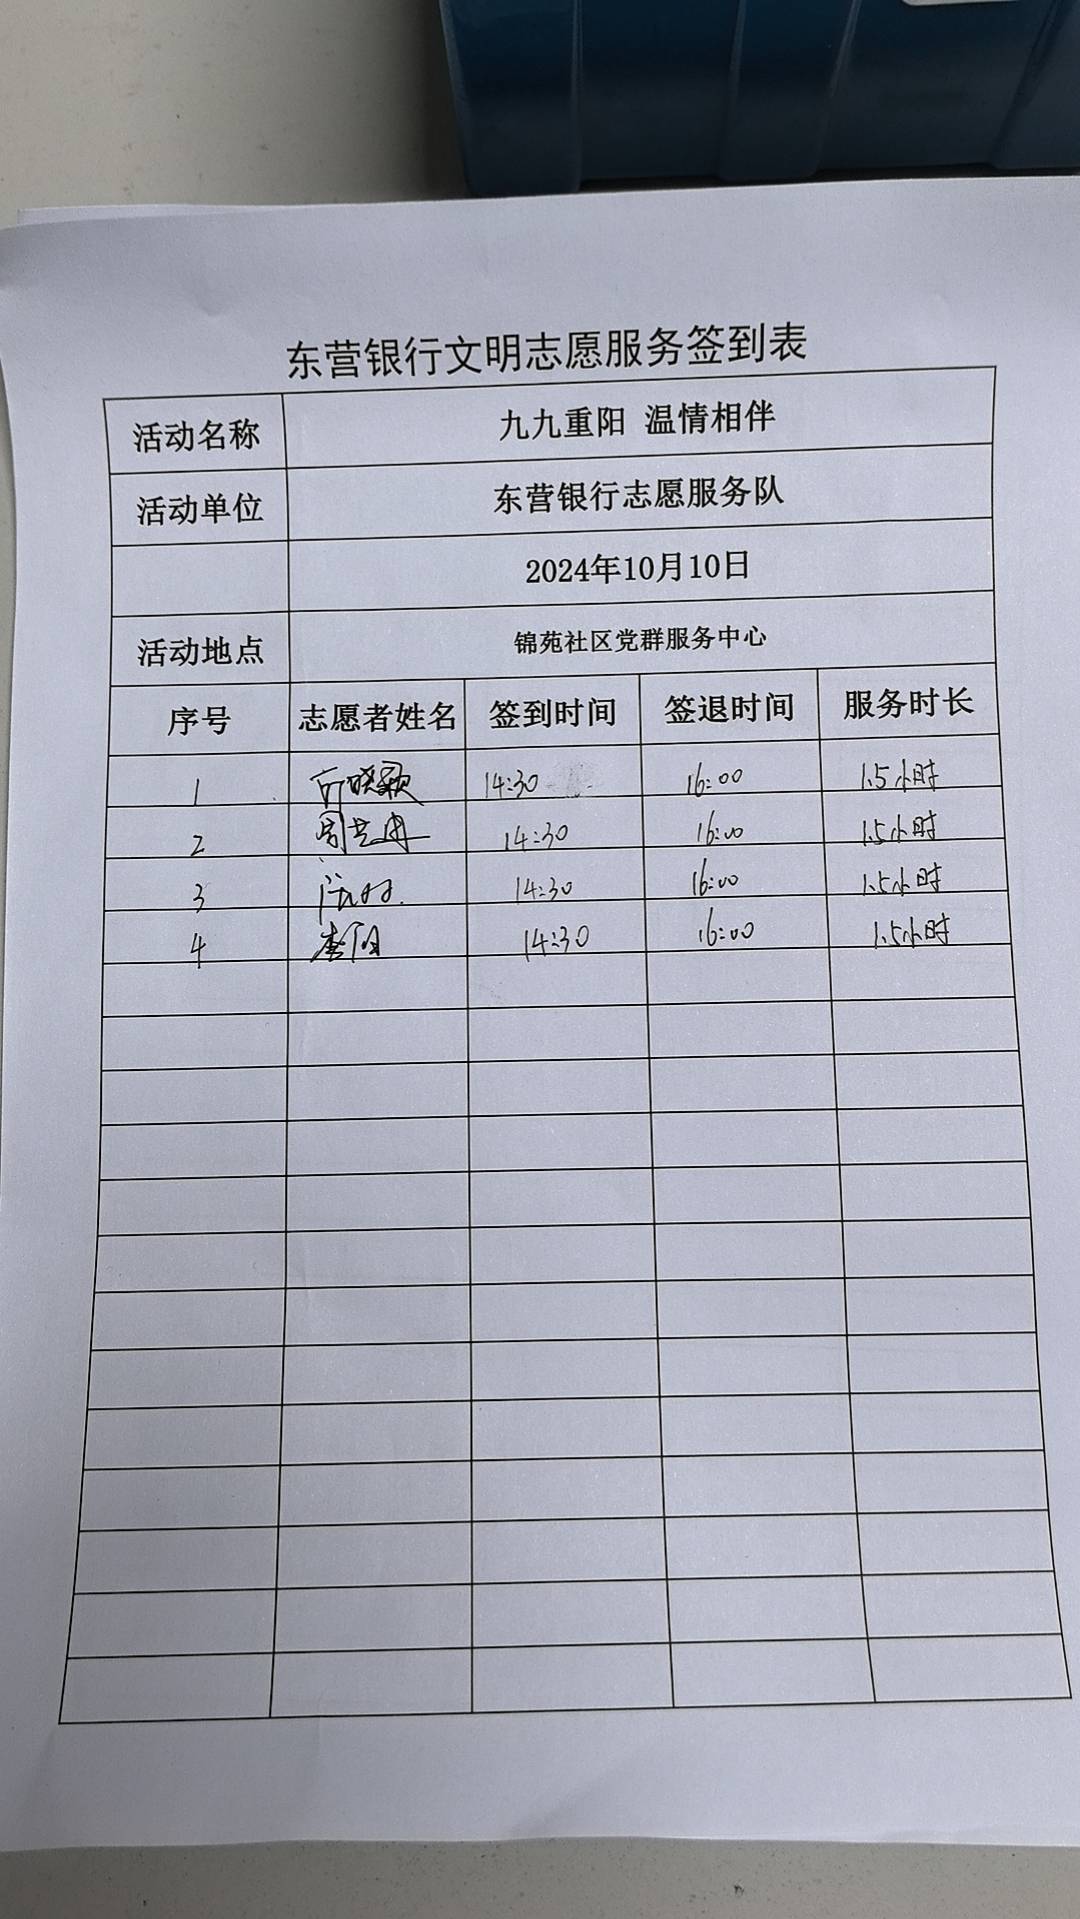 东营银行文明志愿服务签到表
活动名称 九九重阳 温情相伴
活动单位 东营银行志愿服务队
2024年10月10日
活动地点 锦苑社区党群服务中心
序号 志愿者姓名 签到时间 签退时间 服务时长
1 14:30 16:00 1.5小时
2 14:30 16:00 1.5小时
3 14:30 16:00 1.5小时
4 李阳 14:30 16:00 1.5小时